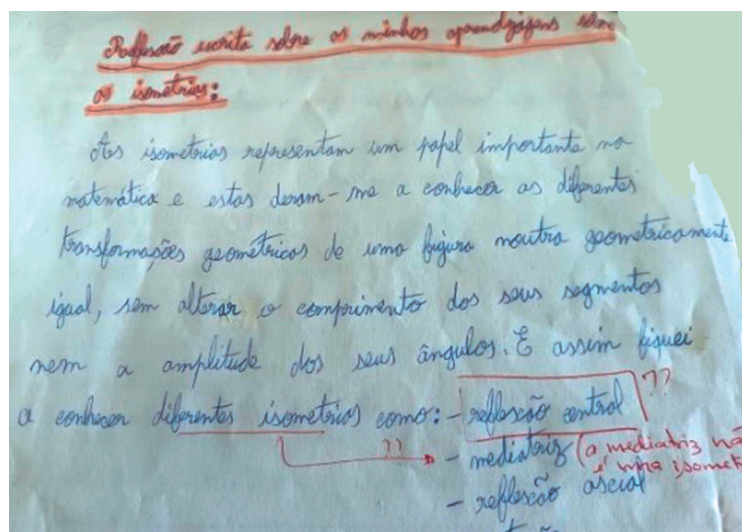 Reflexão escrita sobre as minhas aprendizagens sobre
as isometrias:
As isometrias representam um papel importante na
matemática e estas deram-me a conhecer as diferentes
transformações geométricas de uma figura noutra geometricamente
igual, sem alterar o comprimento dos seus segmentos
nem a amplitude dos seus ângulos. E assim fiquei
a conhecer diferentes isometrias como: - reflexão central ??
?? - mediatriz (a mediatriz nã
é uma isomet
- reflexão axial